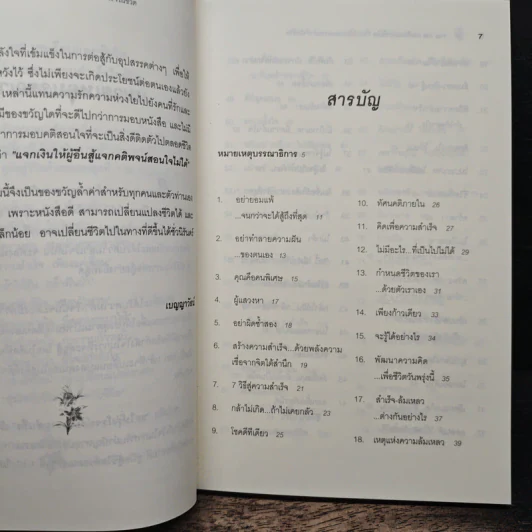 ลังใจที่เข้มแข็งในการต่อสู้กับอุปสรรคต่างๆ เพื่อให้
หวังไว้ ซึ่งไม่เพียงจะเกิดประโยชน์ต่อตนเองแล้วยัง
เหล่านี้แทนความรักความห่วงใยไปยังคนที่รักและ
มีของขวัญใดที่จะดีไปกว่าการมอบหนังสือ และไม่มี
าการมอบคติสอนใจที่จะเป็นสิ่งดีติดตัวไปตลอดชีวิต
า "แจกเงินให้ผู้อื่นสู้แจกคติพจน์สอนใจไม่ได้"
นี้จึงเป็นของขวัญล้ำค่าสำหรับทุกคนและตัวท่านเอง
เพราะหนังสือดี สามารถเปลี่ยนแปลงชีวิตได้ และ
ล็กน้อย อาจเปลี่ยนชีวิตไปในทางที่ดีขึ้นได้ชั่วนิรันดร์
7
สารบัญ
หมายเหตุบรรณาธิการ 5
1. อย่ายอมแพ้
...จนกว่าจะได้สู้ถึงที่สุด 11
2. อย่าทำลายความฝัน
...ของตนเอง 13
3. คุณคือคนพิเศษ 15
4. ผู้แสวงหา 17
5. อย่าผิดซ้ำสอง 18
6. สร้างความสำเร็จ...ด้วยพลังความ
เชื่อจากจิตใต้สำนึก 19
7. 7 วิธีสู่ความสำเร็จ 21
8. กล้าไม่เกิด...ถ้าไม่เคยกลัว 23
9. โชคดีทีเดียว 25
10. ทัศนคติภายใน 26
11. คิดเพื่อความสำเร็จ 27
12. ไม่มีอะไร...ที่เป็นไปไม่ได้ 29
13. กำหนดชีวิตของเรา
...ด้วยตัวเราเอง 31
14. เพียงก้าวเดียว 33
15. จะรู้ได้อย่างไร 34
16. พัฒนาความคิด
...เพื่อชีวิตวันพรุ่งนี้ 35
17. สำเร็จ-ล้มเหลว
...ต่างกันอย่างไร 37
18. เหตุแห่งความล้มเหลว 39